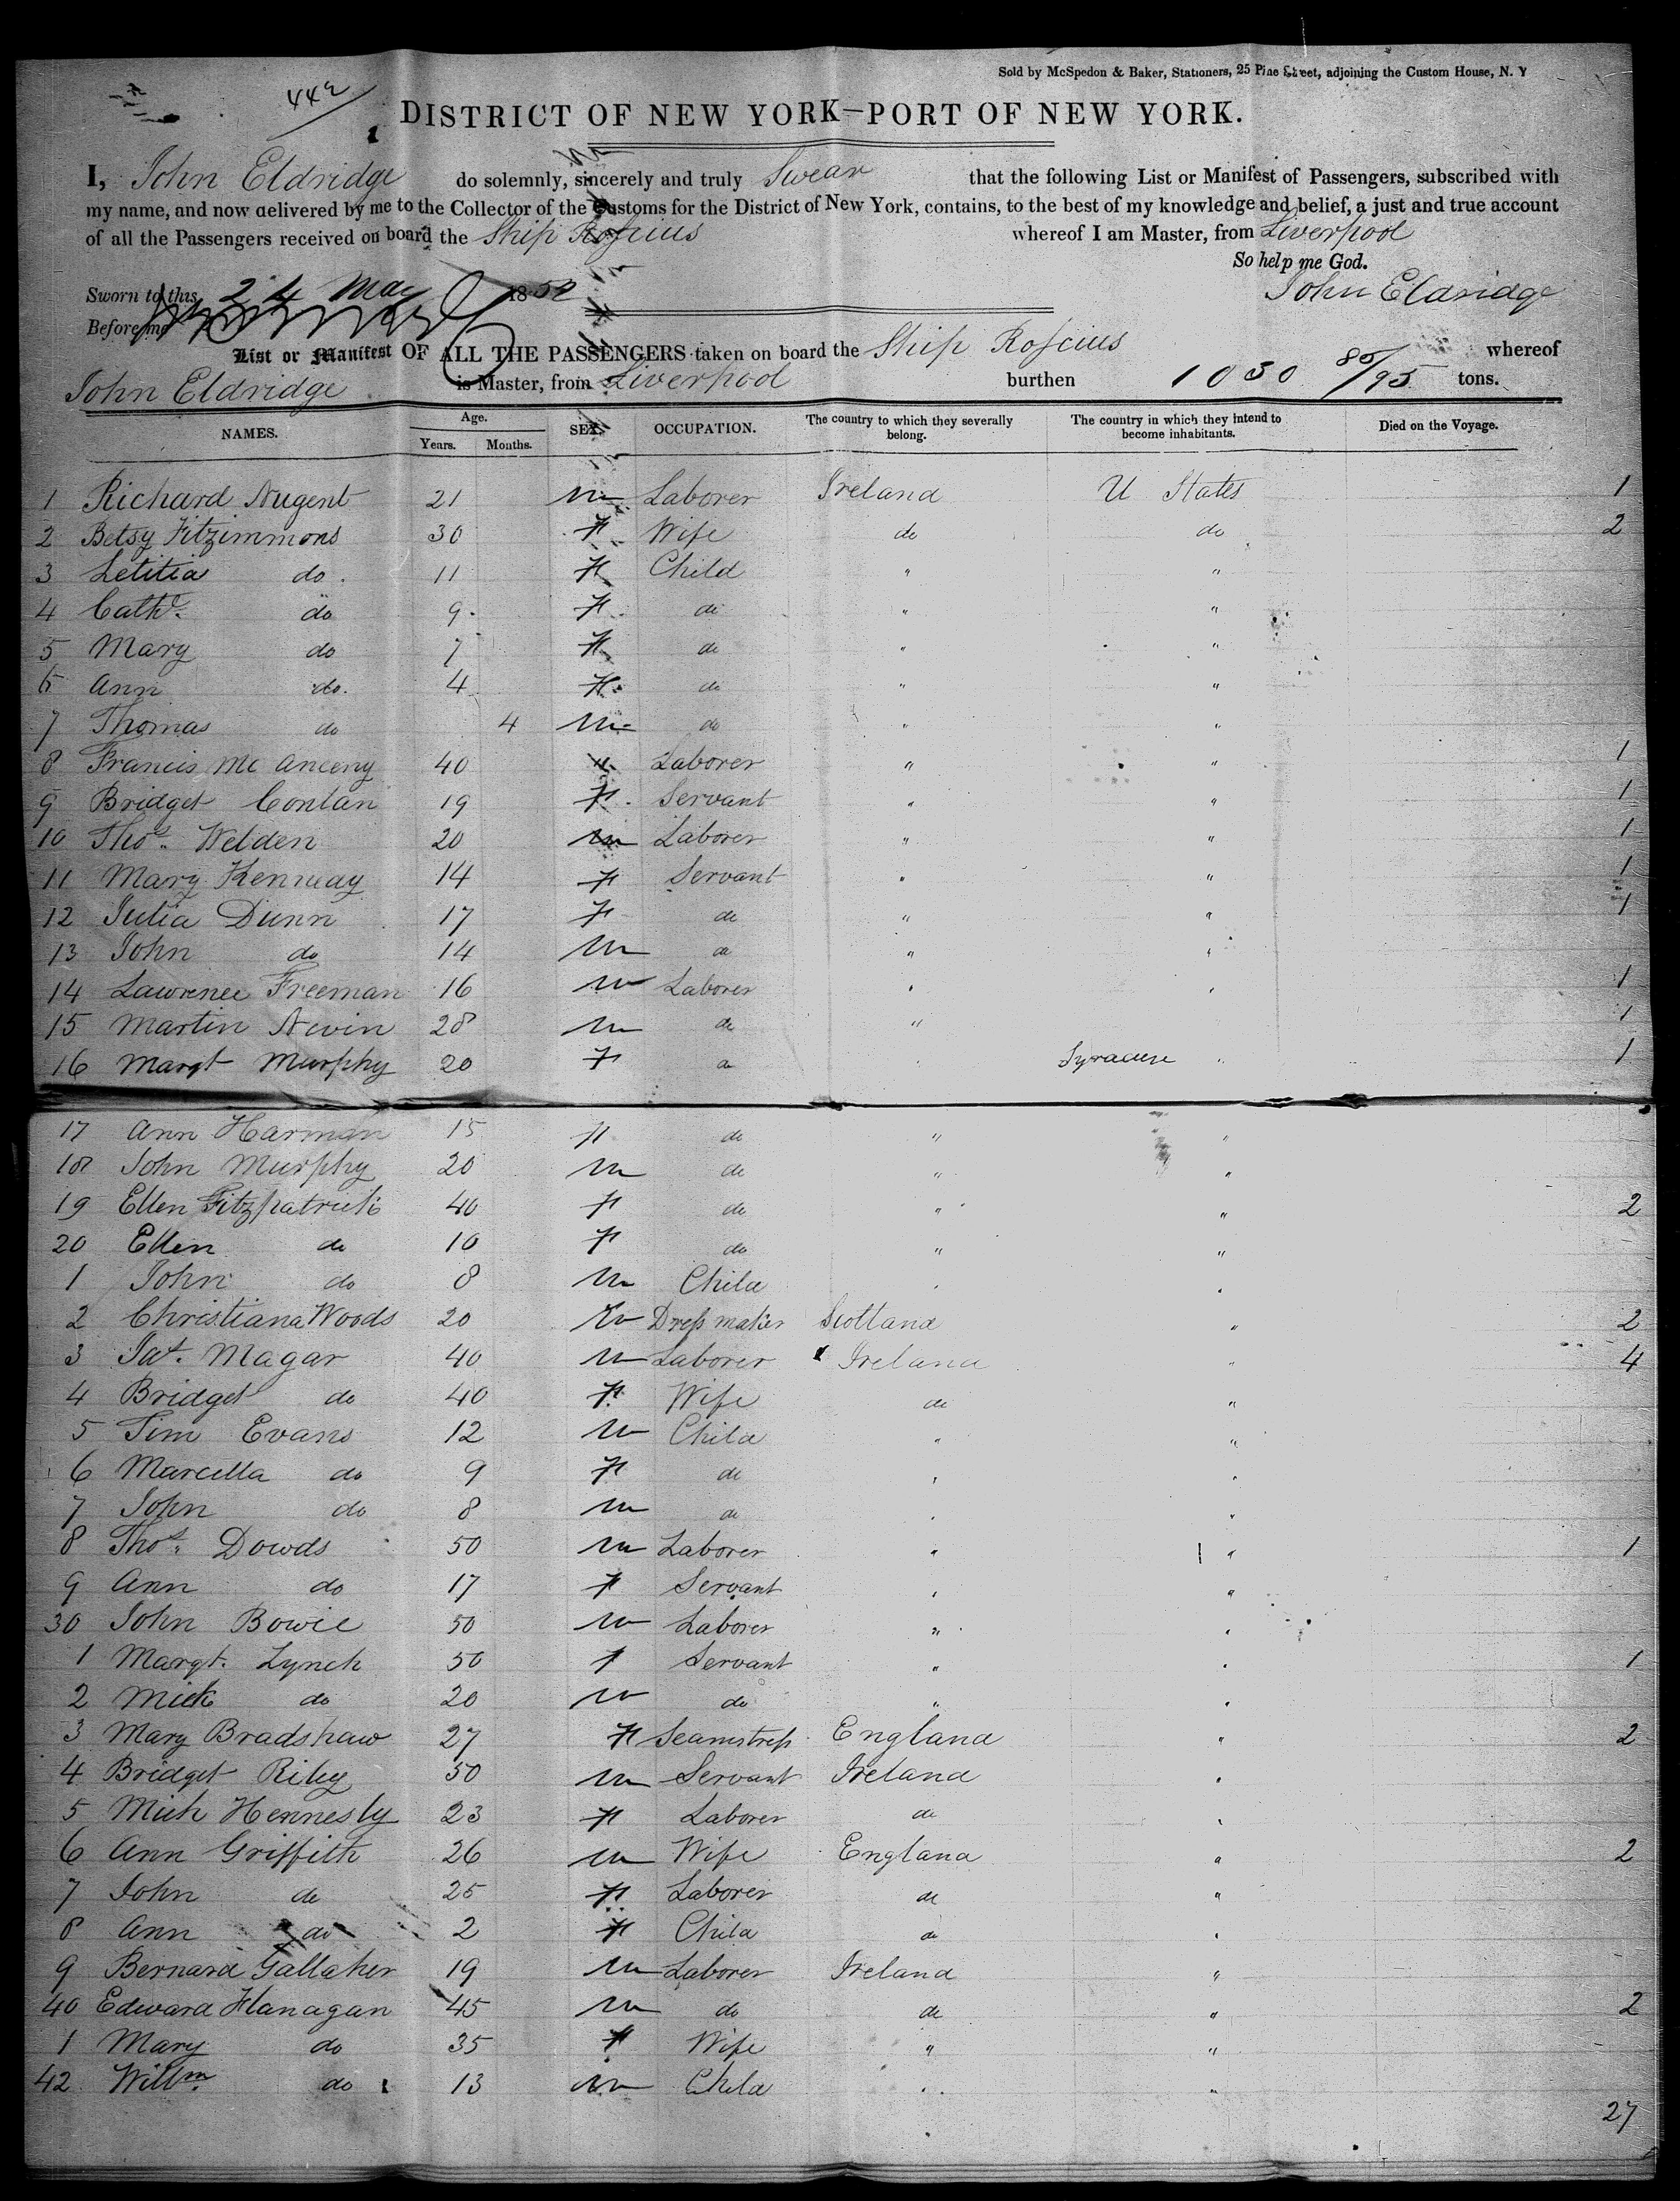 Sold by McSpedon & Baker, Stationers, 25 Pine Street, adjoining the Custom House, N. Y
442
DISTRICT OF NEW YORK—PORT OF NEW YORK.
I, John Eldridge do solemnly, sincerely and truly Swear that the following List or Manifest of Passengers, subscribed with
my name, and now delivered by me to the Collector of the Customs for the District of New York, contains, to the best of my knowledge and belief, a just and true account
of all the Passengers received on board the Ship Roscius whereof I am Master, from Liverpool
So help me God.
Sworn to this 24 May 1852 John Eldridge
Before me
List or Manifest OF ALL THE PASSENGERS taken on board the Ship Roscius whereof
John Eldridge is Master, from Liverpool burthen 1030 85/95 tons.
NAMES. Age. Years. Months. SEX. OCCUPATION. The country to which they severally belong. The country in which they intend to become inhabitants. Died on the Voyage.
1 Richard Nugent 21 m Laborer Ireland U States 1
2 Betsy Fitzimmons 30 F Wife do do 2
3 Letitia do. 11 F Child " "
4 Cathe. do 9 F do " "
5 Mary do 7 F do " "
6 Ann do. 4 F do " "
7 Thomas do 4 m do " "
8 Francis Mc Aneeny 40 Laborer " " 1
9 Bridget Conlan 19 F Servant " " 1
10 Thos. Welden 20 m Laborer " " 1
11 Mary Kenway 14 F Servant " " 1
12 Julia Dunn 17 F do " " 1
13 John do 14 m do " "
14 Lawrence Freeman 16 m Laborer " " 1
15 Martin Nevin 28 m do " 1
16 Margt Murphy 20 F do " Syracuse " 1
17 Ann Harman 15 F do " "
18 John Murphy 20 m do " "
19 Ellen Fitzpatrick 40 F do " " 2
20 Ellen do 10 F do " "
1 John do 8 m Child " "
2 Christiana Woods 20 m Dress maker Scotland " 2
3 Pat. Magar 40 m Laborer Ireland " 4
4 Bridget do 40 F Wife do "
5 Tim Evans 12 m Child " "
6 Marcella do 9 F do " "
7 John do 8 m do " "
8 Thos. Dowds 50 m Laborer " " 1
9 Ann do 17 F Servant " "
30 John Bowie 50 m Laborer " "
1 Margt. Lynch 50 F Servant " " 1
2 Mick do 20 m do " "
3 Mary Bradshaw 27 F Seamstress England " 2
4 Bridget Riley 50 m Servant Ireland "
5 Mich Hennesly 23 F Laborer do "
6 Ann Griffith 26 m Wife England " 2
7 John do 25 F Laborer do "
8 Ann do 2 F Child do "
9 Bernard Gallaher 19 m Laborer Ireland "
40 Edward Flanagan 45 m do do " 2
1 Mary do 35 F Wife " "
42 Willm. do 13 m Child " "
27